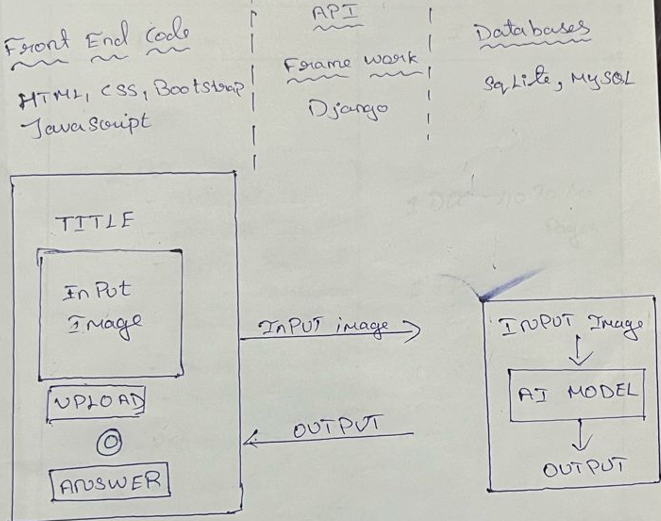 Front End Code
HTML, CSS, Bootstrap
JavaScript
API
Frame work
Django
Databases
SqLite, MySQL
TITLE
InPut
Image
UPLOAD
ANSWER
InPUT image
OUTPUT
INPUT Image
AI MODEL
OUTPUT